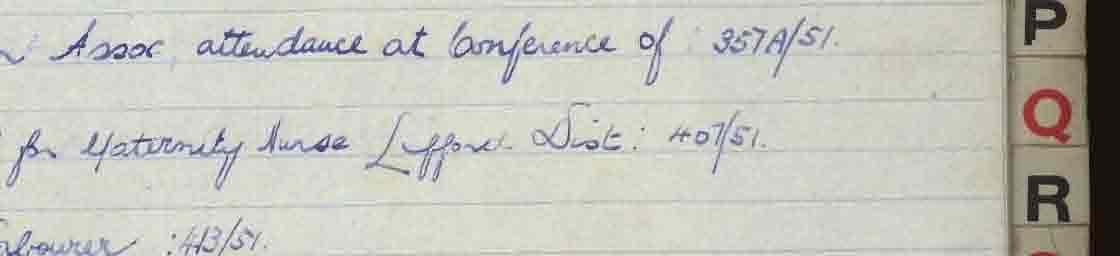 Assoc, attendance at Conference of : 357A/51.
for Maternity Nurse Lifford Dist: 407/51.
:413/51.
P
Q
R